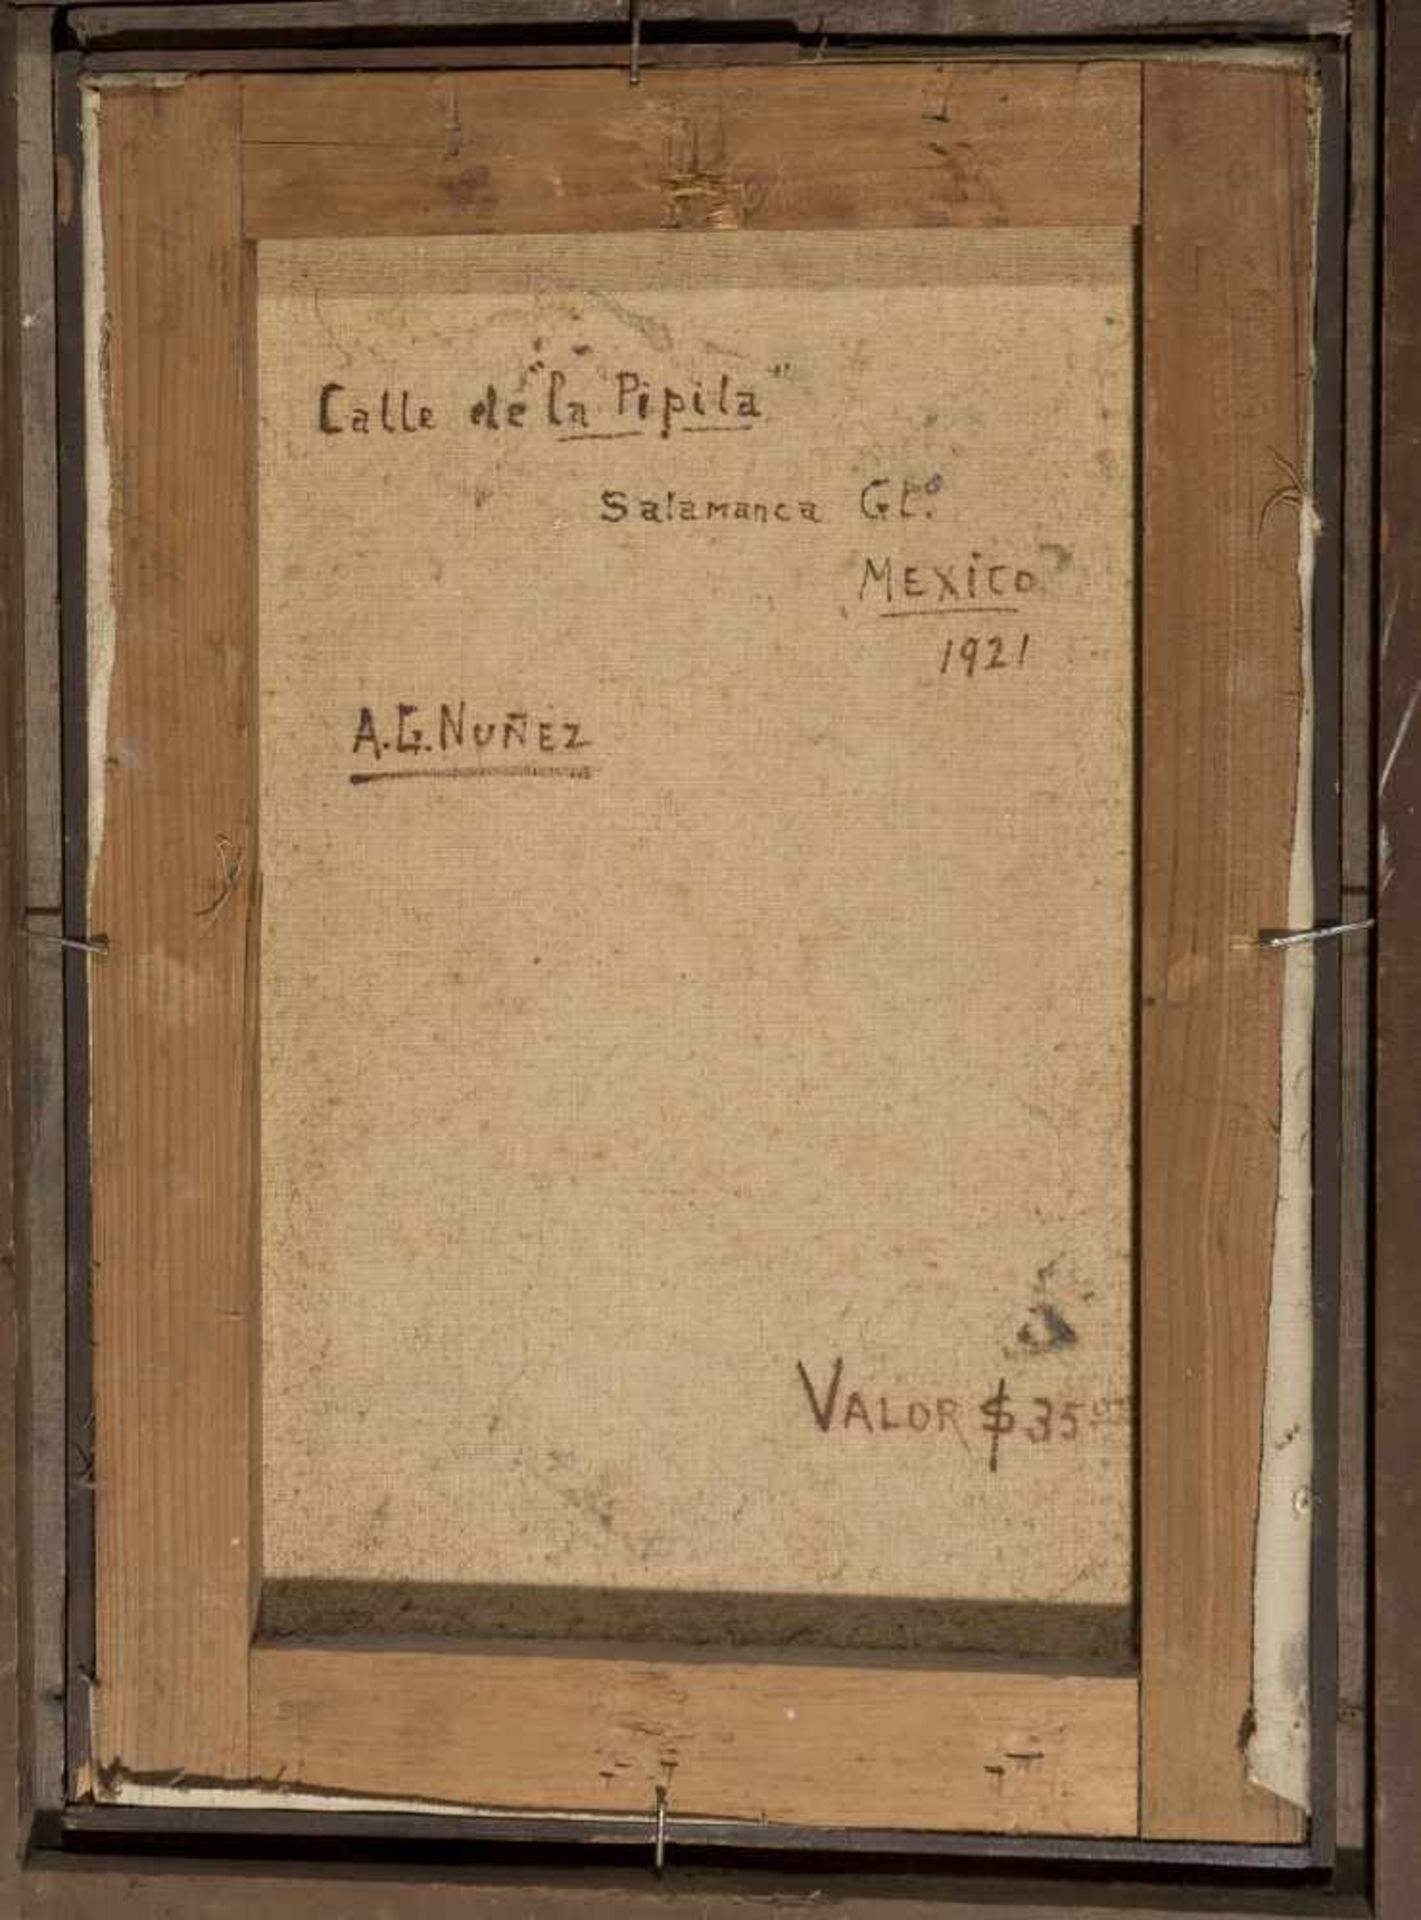 Calle de "la Pipila"
Salamanca Gtº.
MEXiCO
1921
A.G. NUÑEZ
VALOR $35